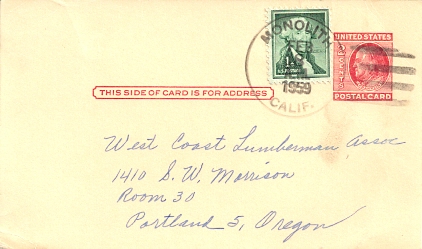 MONOLITH
FEB
1959
CALIF.
U.S. POSTAGE
UNITED STATES
2 CENTS
POSTAL CARD
THIS SIDE OF CARD IS FOR ADDRESS
West Coast Lumberman Assoc
1410 S. W. Morrison
Room 30
Portland 5, Oregon